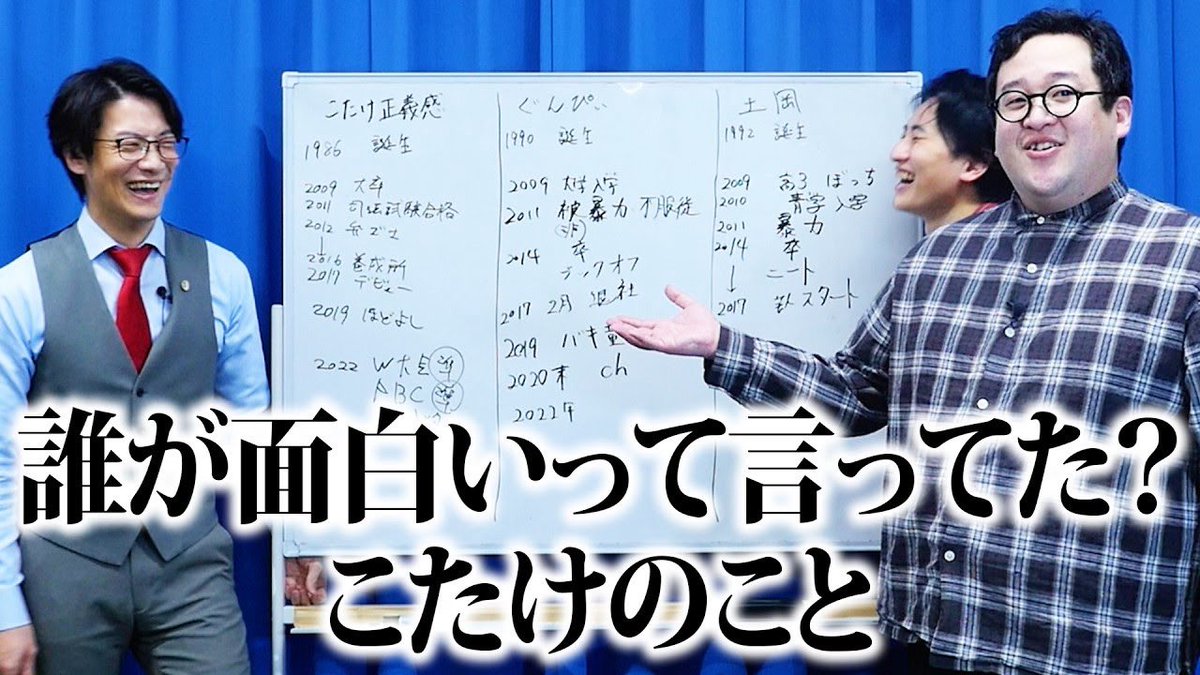 こたけ正義感
1986 誕生
2009 大卒
2011 司法試験合格
2012 弁ゴ士
↓
2016 養成所
2017 デビュー
2019 ほどよし
2022 W大
ABC 準
ぐんぴぃ
1990 誕生
2009 大学入学
2011 被暴力 不服従
2014 卒
ブックオフ
2017 2月 退社
2019 バキ
2020末 ch
2022年
土岡
1992 誕生
2009 高3 ぼっち
2010 青学入学
2011 暴力
2014 卒
↓ ニート
2017 スタート
誰が面白いって言ってた?
こたけのこと